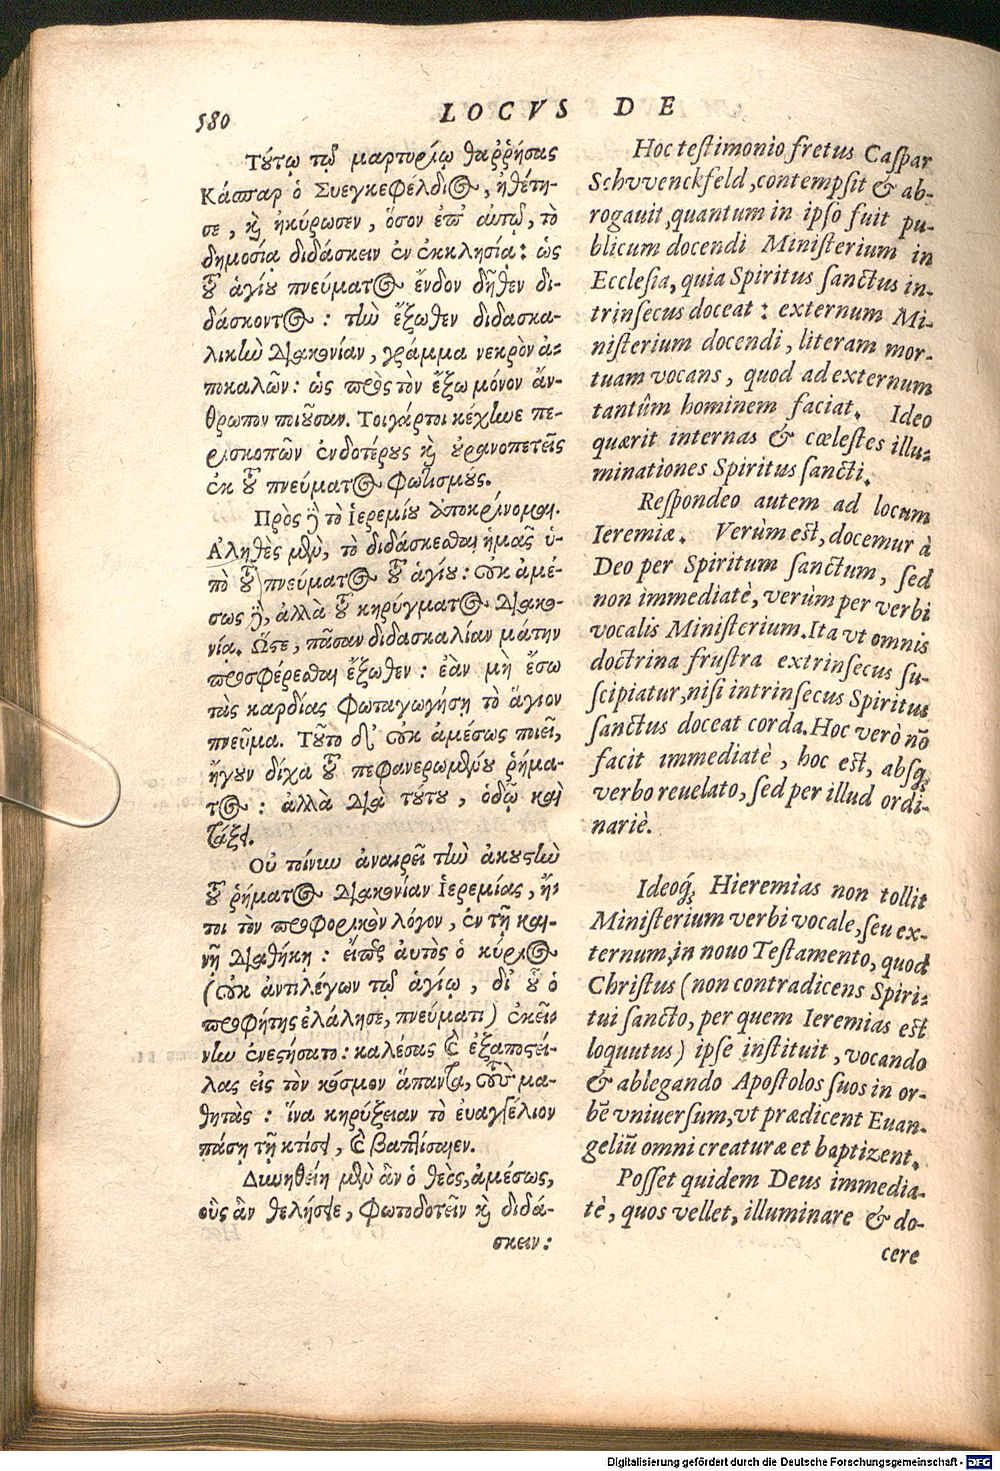 580
LOCVS DE
Τούτῳ τῷ μαρτυρίῳ θαῤῥήσας
Κάσπαρ ὁ Συεγκεφέλδιος, ἠθέτη-
σε, καὶ ἠκύρωσεν, ὅσον ἐπ' αὐτῷ, τὸ
δημοσίᾳ διδάσκειν ἐν ἐκκλησίᾳ: ὡς
τοῦ ἁγίου πνεύματος ἔνδον δῆθεν δι-
δάσκοντος: τὴν ἔξωθεν διδασκα-
λικὴν διακονίαν, γράμμα νεκρὸν ἀ-
ποκαλῶν: ὡς πρὸς τὸν ἔξω μόνον ἄν-
θρωπον ποιοῦσαν. Τοιγάρτοι κέχηνε πε-
ρισκοπῶν ἐνδοτέρους καὶ οὐρανοπετεῖς
ἐκ τοῦ πνεύματος φωτισμούς.
Πρὸς δὲ τὸ Ἱερεμίου ἀποκρίνομαι.
Ἀληθὲς μὲν, τὸ διδάσκεσθαι ἡμᾶς ὑ-
πὸ τοῦ πνεύματος τοῦ ἁγίου: οὐκ ἀμέ-
σως δὲ, ἀλλὰ τοῦ κηρύγματος διακο-
νίᾳ. Ὥστε, πᾶσαν διδασκαλίαν μάτην
προσφέρεσθαι ἔξωθεν: ἐὰν μὴ ἔσω
τὰς καρδίας φωταγωγήσῃ τὸ ἅγιον
πνεῦμα. Τοῦτο δ' οὐκ ἀμέσως ποιεῖ,
ἤγουν δίχα τοῦ πεφανερωμένου ῥήμα-
τος: ἀλλὰ διὰ τούτου, ὁδῷ καὶ
τάξει.
Οὐ τοίνυν ἀναιρεῖ τὴν ἀκουστὴν
τοῦ ῥήματος διακονίαν Ἱερεμίας, ἤ-
τοι τὸν προφορικὸν λόγον, ἐν τῇ και-
νῇ διαθήκῃ: εἴπερ αὐτὸς ὁ κύριος
(οὐκ ἀντιλέγων τῷ ἁγίῳ, δι' οὗ ὁ
προφήτης ἐλάλησε, πνεύματι) ἐκεί-
νην ἐνεστήσατο: καλέσας καὶ ἐξαποστεί-
λας εἰς τὸν κόσμον ἅπαντα, τοὺς μα-
θητὰς: ἵνα κηρύξειαν τὸ ἐυαγγέλιον
πάσῃ τῇ κτίσει, καὶ βαπτίσαιεν.
Δυνηθείη μὲν ἂν ὁ θεὸς, ἀμέσως,
οὓς ἂν θελήσειε, φωτοδοτεῖν καὶ διδά-
σκειν:
Hoc testimonio fretus Caspar
Schvvenckfeld, contempsit & ab-
rogauit, quantum in ipso fuit pu-
blicum docendi Ministerium in
Ecclesia, quia Spiritus sanctus in-
trinsecus doceat: externum Mi-
nisterium docendi, literam mor-
tuam vocans, quod ad externum
tantûm hominem faciat. Ideo
quærit internas & cœlestes illu-
minationes Spiritus sancti.
Respondeo autem ad locum
Ieremiæ. Verùm est, docemur à
Deo per Spiritum sanctum, sed
non immediatè, verùm per verbi
vocalis Ministerium. Ita vt omnis
doctrina frustra extrinsecus su-
scipiatur, nisi intrinsecus Spiritus
sanctus doceat corda. Hoc verò nõ
facit immediatè, hoc est, absq;
verbo reuelato, sed per illud ordi-
nariè.
Ideoq́; Hieremias non tollit
Ministerium verbi vocale, seu ex-
ternum, in nouo Testamento, quod
Christus (non contradicens Spiri-
tui sancto, per quem Ieremias est
loquutus) ipse instituit, vocando
& ablegando Apostolos suos in or-
bẽ vniuersum, vt prædicent Euan-
geliũ omni creaturæ et baptizent.
Posset quidem Deus immedia-
tè, quos vellet, illuminare & do-
cere
Digitalisierung gefördert durch die Deutsche Forschungsgemeinschaft - DFG